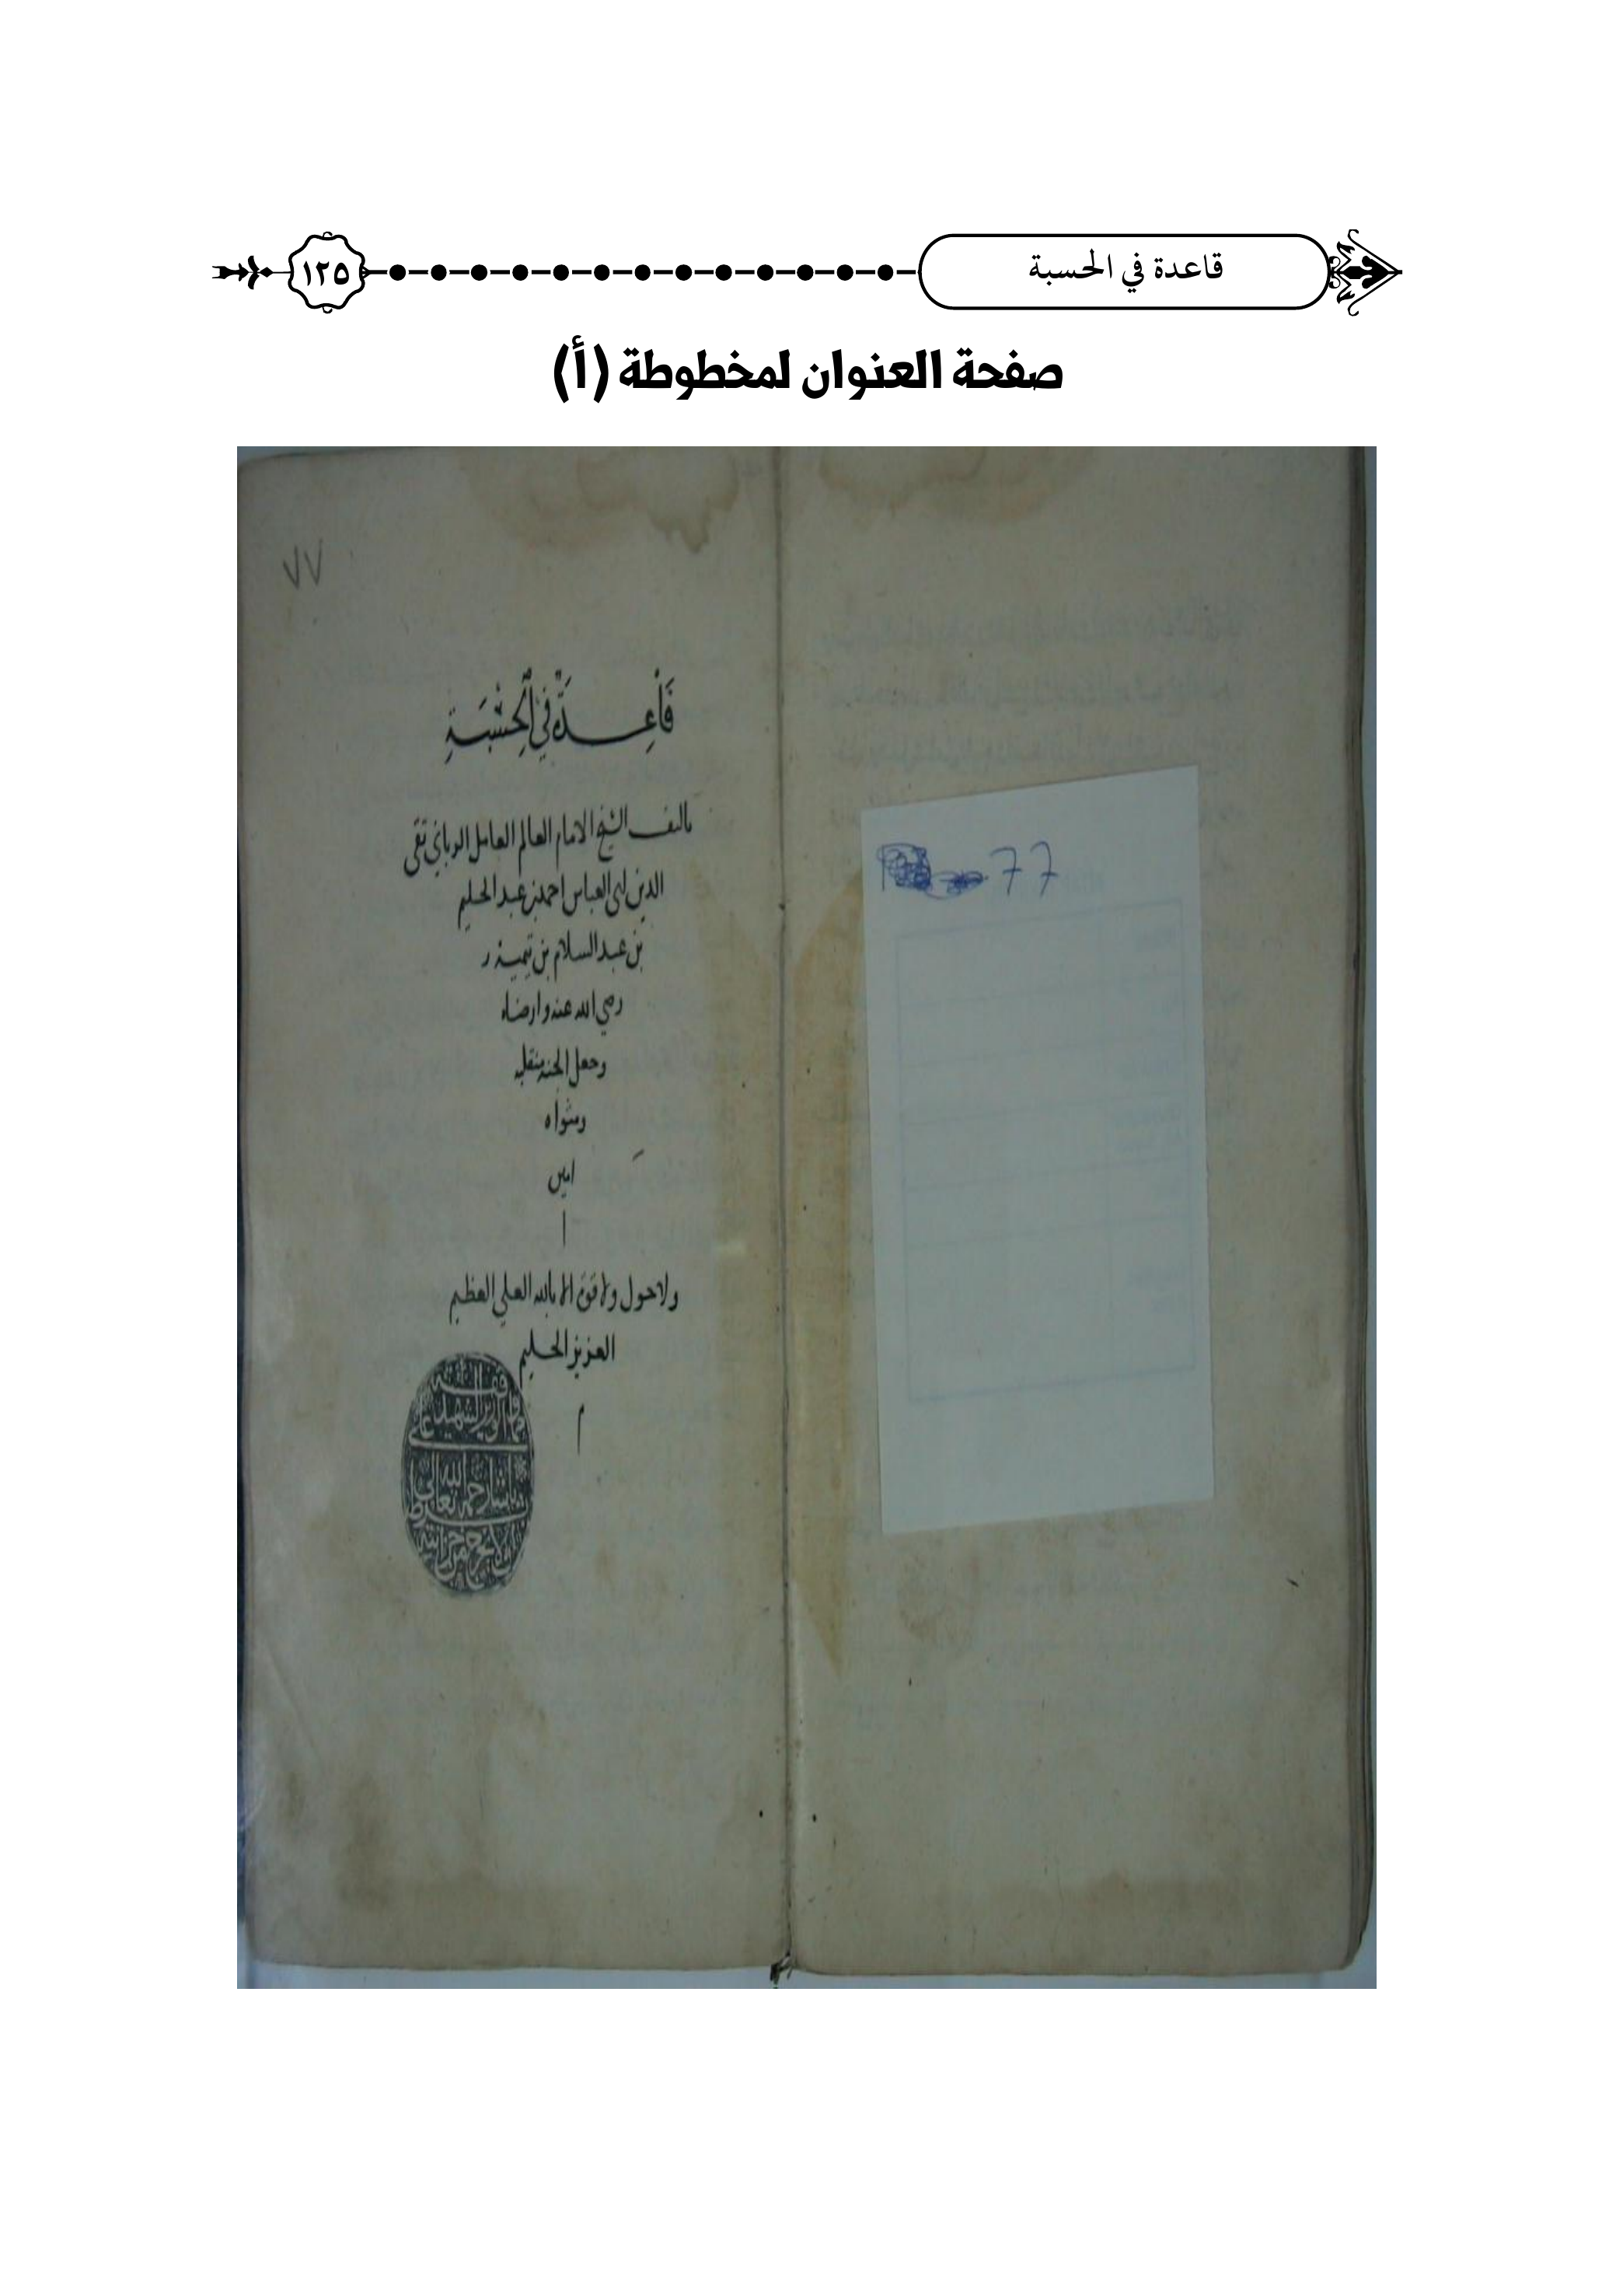 قاعدة في الحسبة
١٢٥
صفحة العنوان لمخطوطة (أ)
٧٧
قَاعِدَةٌ فِي الْحِسْبَةِ
تاليف الشيخ الامام العالم العامل الرباني تقي
الدين ابي العباس احمد بن عبد الحليم
بن عبد السلام بن تيمية
رضي الله عنه وارضاه
وجعل الجنة منقلبه
ومثواه
امين
ولا حول ولا قوة الا بالله العلي العظيم
العزيز الحليم
م
77